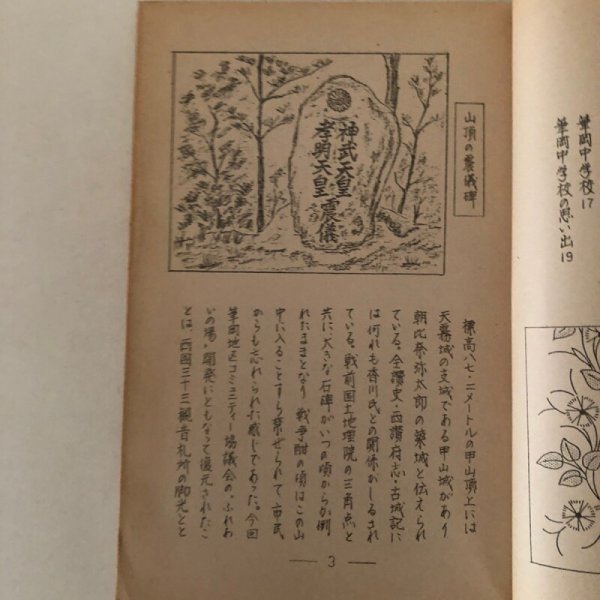 筆岡中学校17
筆岡中学校の思い出19
山頂の震儀碑
神武天皇
孝明天皇
震儀
標高八七・二メートルの甲山頂上には
天霧城の支城である甲山城があり
朝比奈弥太郎の築城と伝えられ
ている。全讃史・西讃府志・古城記に
は何れも香川氏との関係がしるされ
ている。戦前国土地理院の三角点と
共に大きな石碑がいつの頃からか倒
れたままとなり戦争酣の頃はこの山
中に入ることすら禁ぜられて市民
からも忘れられた感じであった。今回
筆岡地区コミュニティー協議会の、ふれあ
いの場・開発にともなって復元されたこ
とは、西国三十三観音札所の脚光とと
3